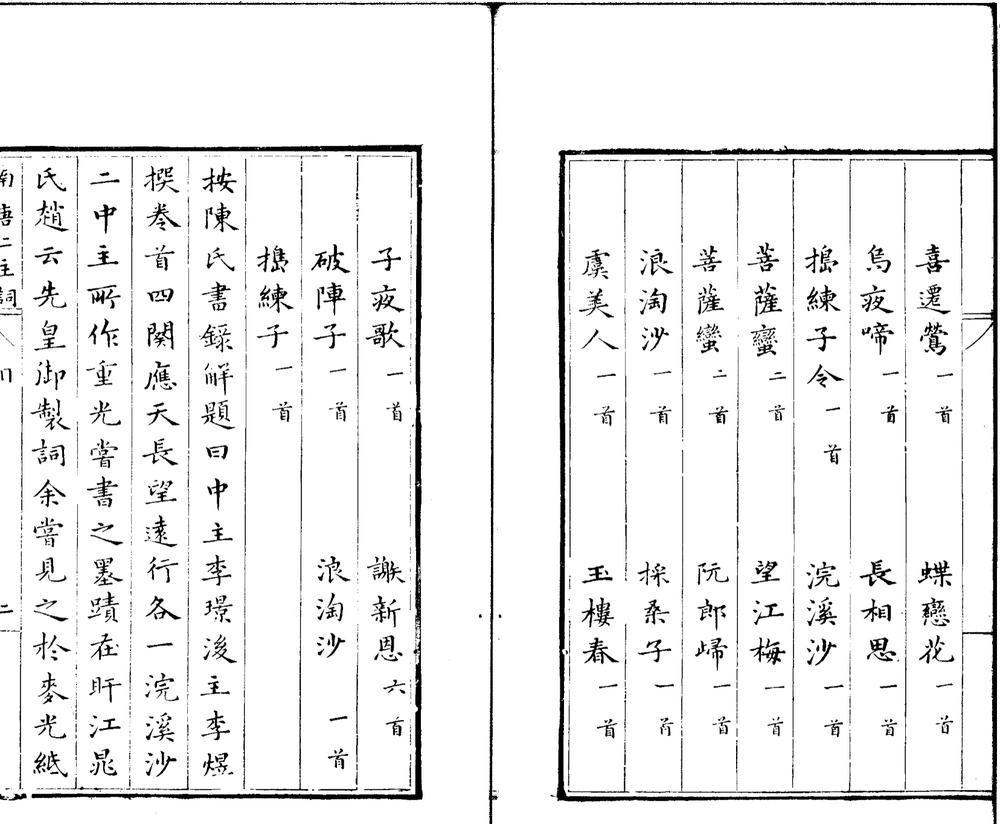 喜遷鶯一首 蝶戀花一首
烏夜啼一首 長相思一首
搗練子令一首 浣溪沙一首
菩薩蠻二首 望江梅一首
菩薩蠻二首 阮郎歸一首
浪淘沙一首 採桑子一首
虞美人一首 玉樓春一首
子夜歌一首 謝新恩六首
破陣子一首 浪淘沙一首
搗練子一首
按陳氏書錄解題曰中主李璟後主李煜
撰卷首四闋應天長望遠行各一浣溪沙
二中主所作重光嘗書之墨蹟在盱江晁
氏趙云先皇御製詞余嘗見之於麥光紙
南唐二主詞 二